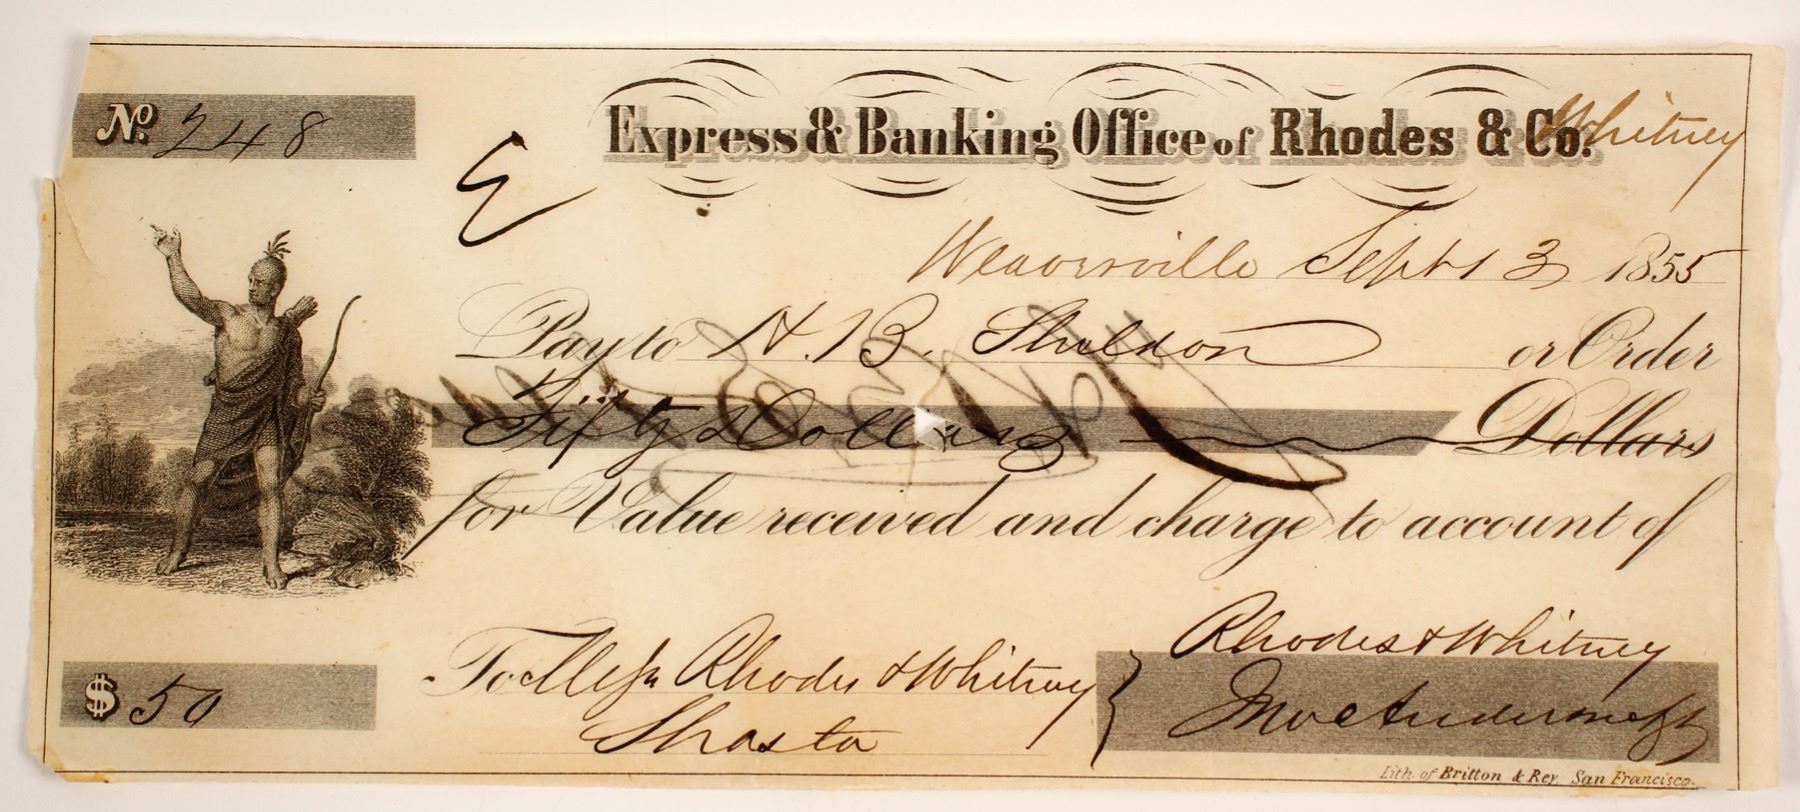 No. 248
E
Express & Banking Office of Rhodes & Co. Whitney
Weaverville Sept 13 1855
Pay to N. B. Sheldon or Order
Fifty Dollars Dollars
for Value received and charge to account of
To Mess Rhodes & Whitney
Shasta
Rhodes & Whitney
Jno Anderson
$ 50
Lith of Britton & Rey San Francisco.